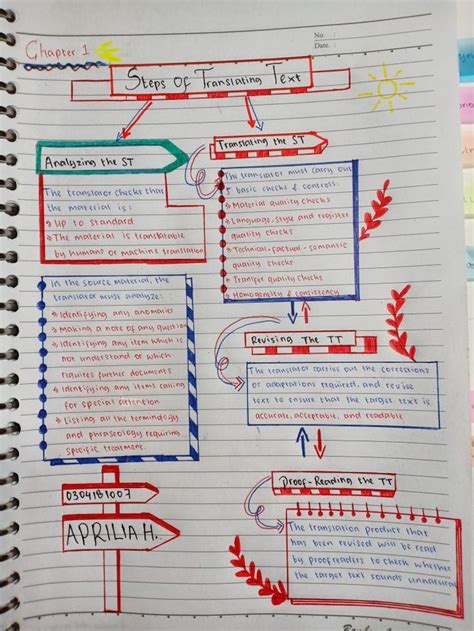 No. :
Date. :
Chapter 1
Steps Of Translating Text
Analyzing the ST
The translator checks that
the material is:
Up to standard
The material is translatable
by humans or machine translation
In the source material, the
translator must analyze:
Identifying any anomalies
Making a note of any question
Identifying any item which is
not understand or which
requires further documents
Identifying any items calling
for special attention
Listing all the terminology
and phraseology requiring
specific treatment.
0304181007
APRILIA H.
Translating the ST
The translator must carry out
5 basic checks & controls:
Material quality checks
Language, style and register
quality checks
Technical-factual-semantic
quality checks
Transfer quality checks
Homogeneity & consistency
Revising The TT
The translator carries out the corrections
or adaptations required, and revise
text to ensure that the target text is
accurate, acceptable, and readable
Proof-Reading the TT
The translation product that
has been revised will be read
by proofreaders to check whether
the target text sounds unnatural